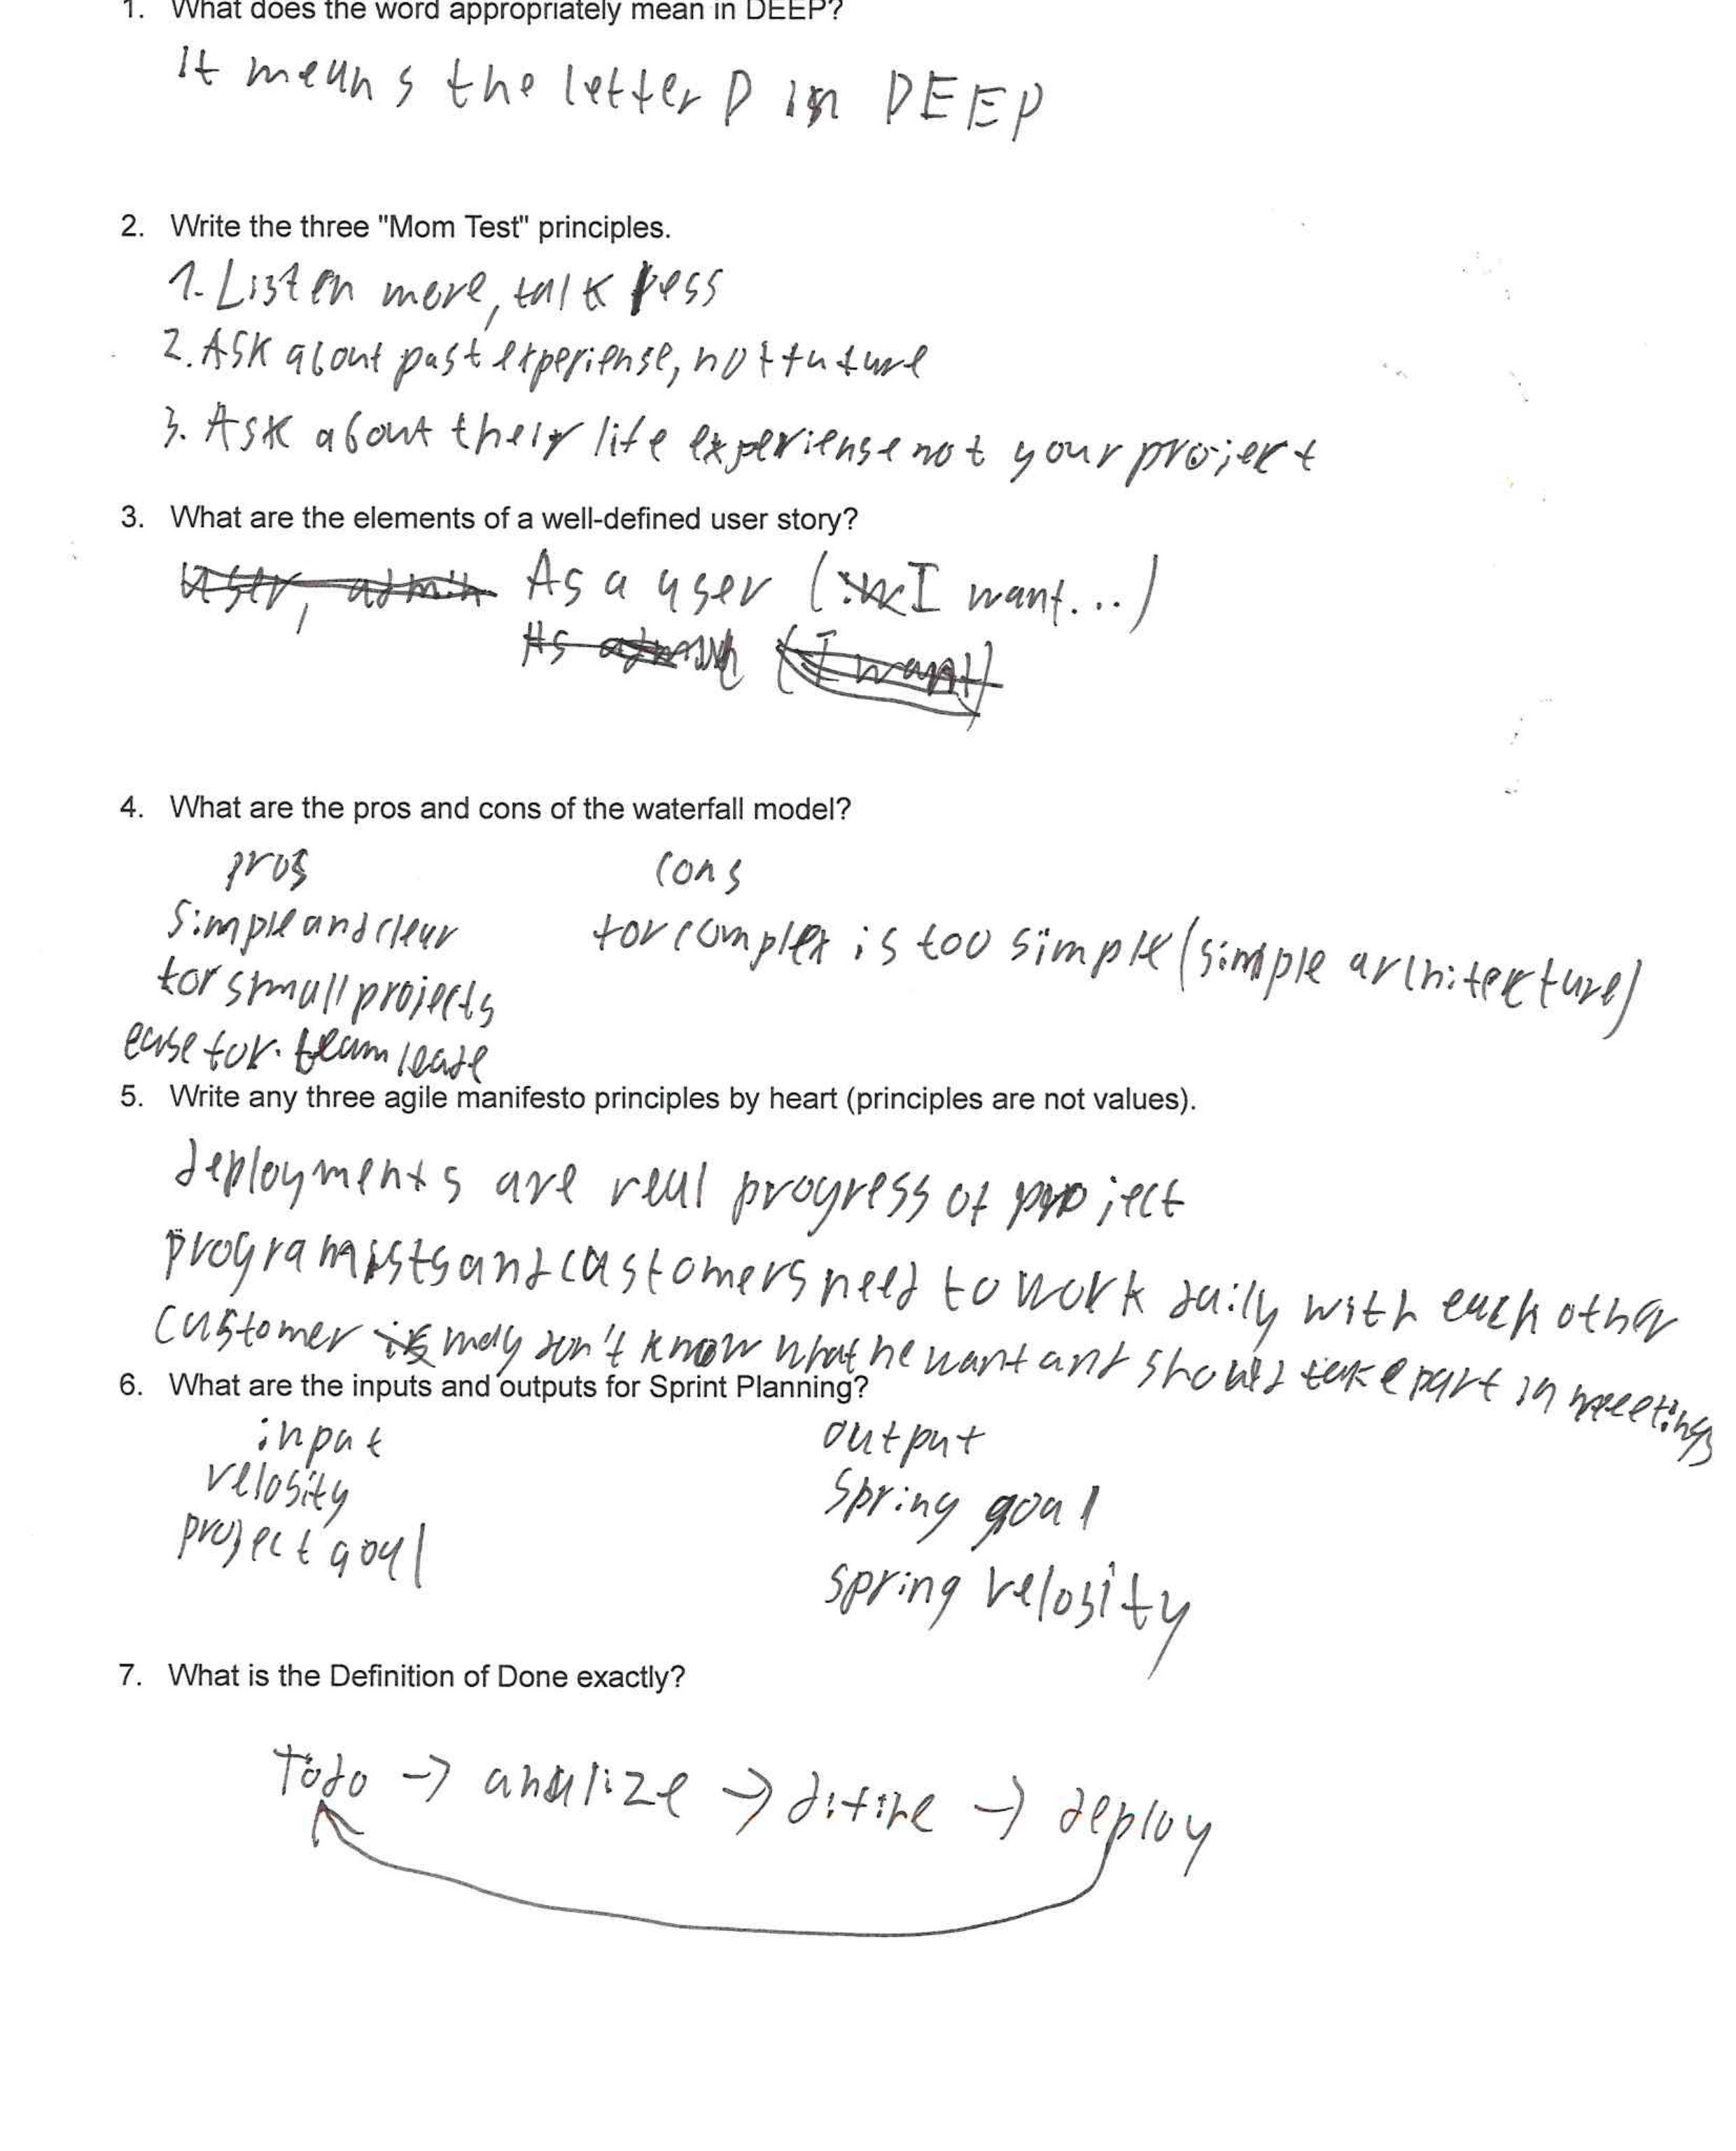 1. What does the word appropriately mean in DEEP?
It means the letter D in DEEP
2. Write the three "Mom Test" principles.
1. Listen more, talk less
2. Ask about past experiense, not future
3. Ask about their life experiense not your project
3. What are the elements of a well-defined user story?
User, admin As a user (I want...)
As admin (I want)
4. What are the pros and cons of the waterfall model?
pros cons
simple and clear for complex is too simple (simple architecture)
for small projects
ease for team leade
5. Write any three agile manifesto principles by heart (principles are not values).
deployments are real progress of project
programists and customers need to work daily with each other
customer is may don't know what he want and should take part in meetings
6. What are the inputs and outputs for Sprint Planning?
input output
velosity spring goal
project goal spring velosity
7. What is the Definition of Done exactly?
Todo -> analize -> difine -> deploy